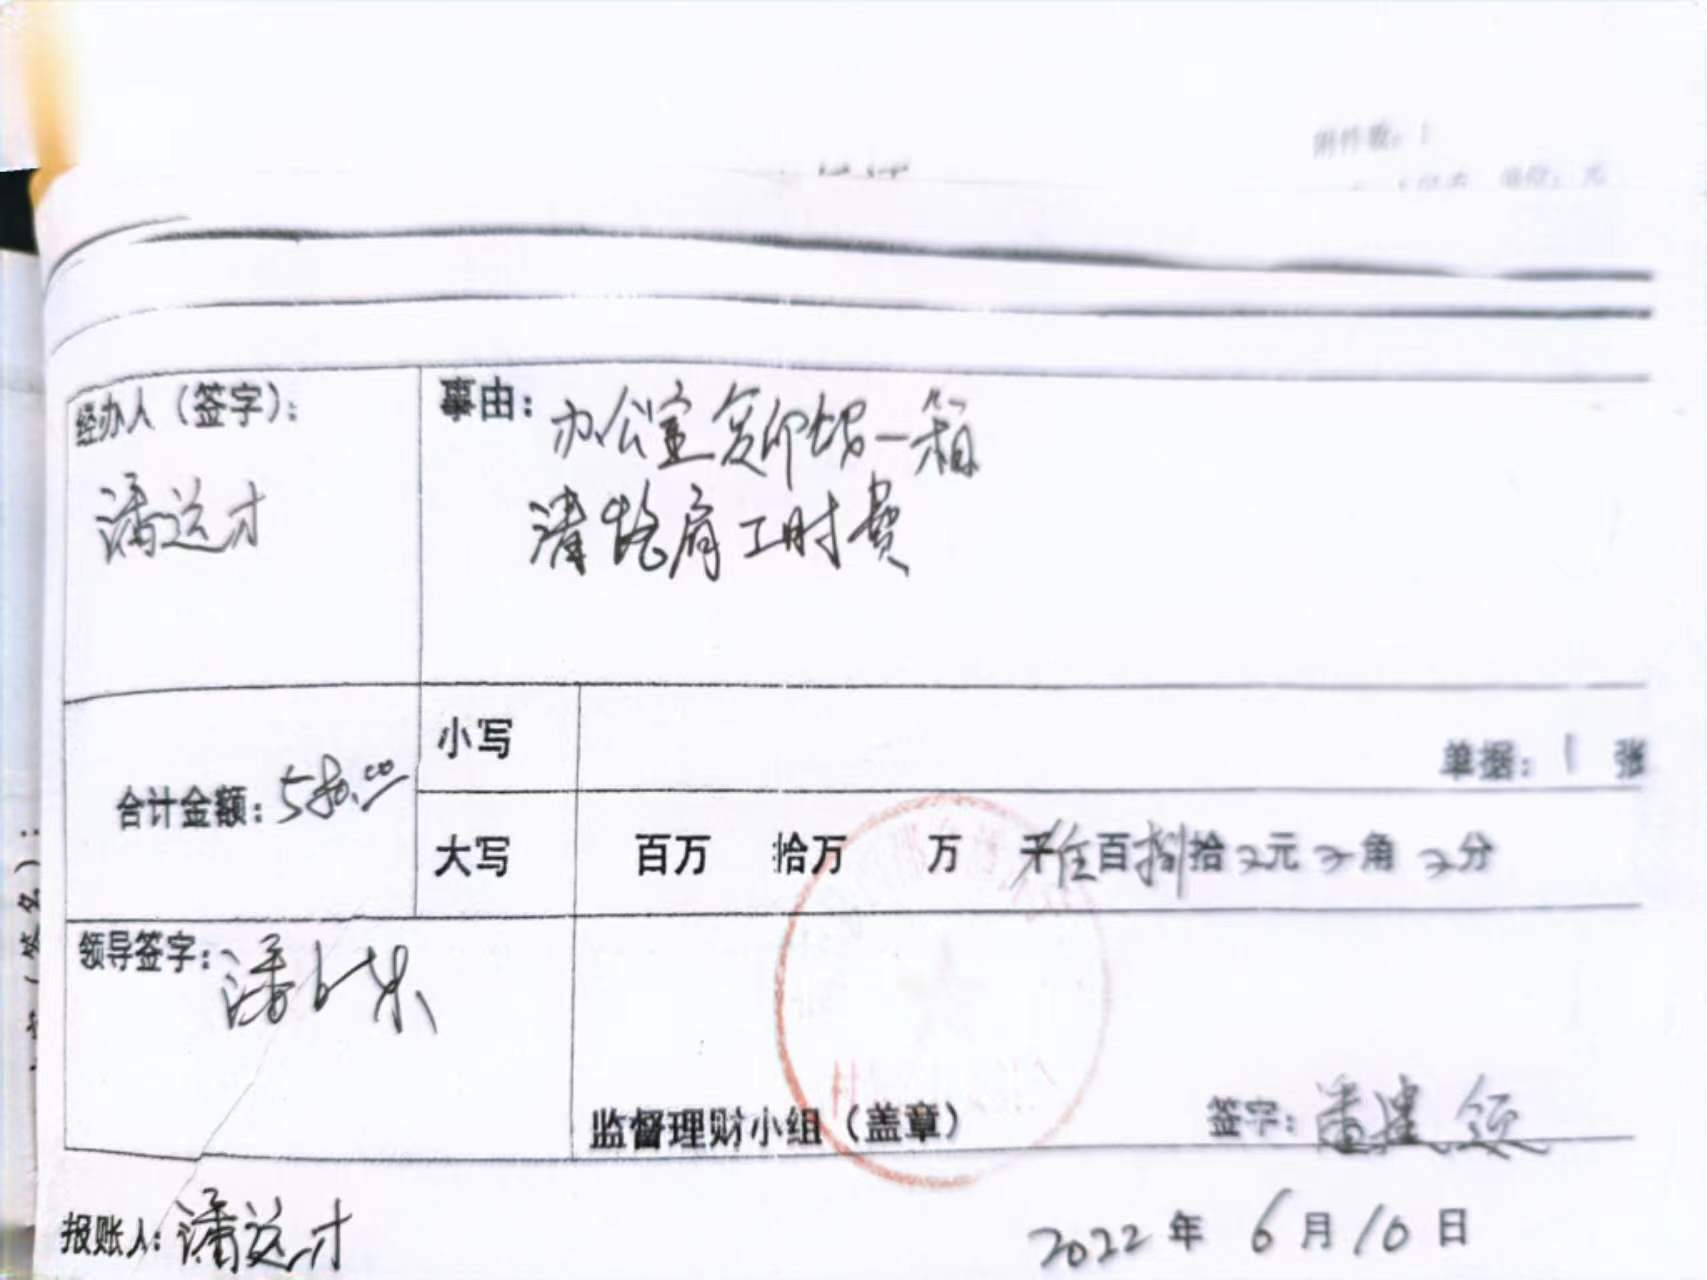 附件数：1
经办人（签字）：
潘运才
事由：办公室复印纸一箱
清路肩工时费
合计金额：580.00
小写
单据：1 张
大写 百万 拾万 万 仟伍百捌拾 元 角 分
领导签字：潘
监督理财小组（盖章）
签字：潘建领
报账人：潘运才
2022 年 6 月 10 日